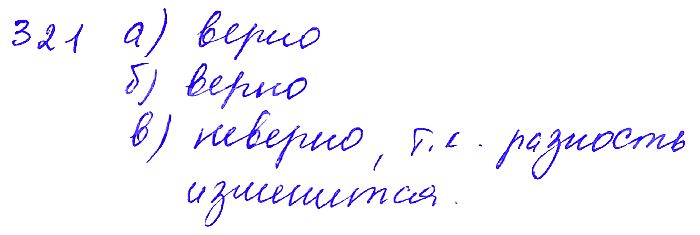 321 а) верно
б) верно
в) неверно, т.к. разность
изменится.